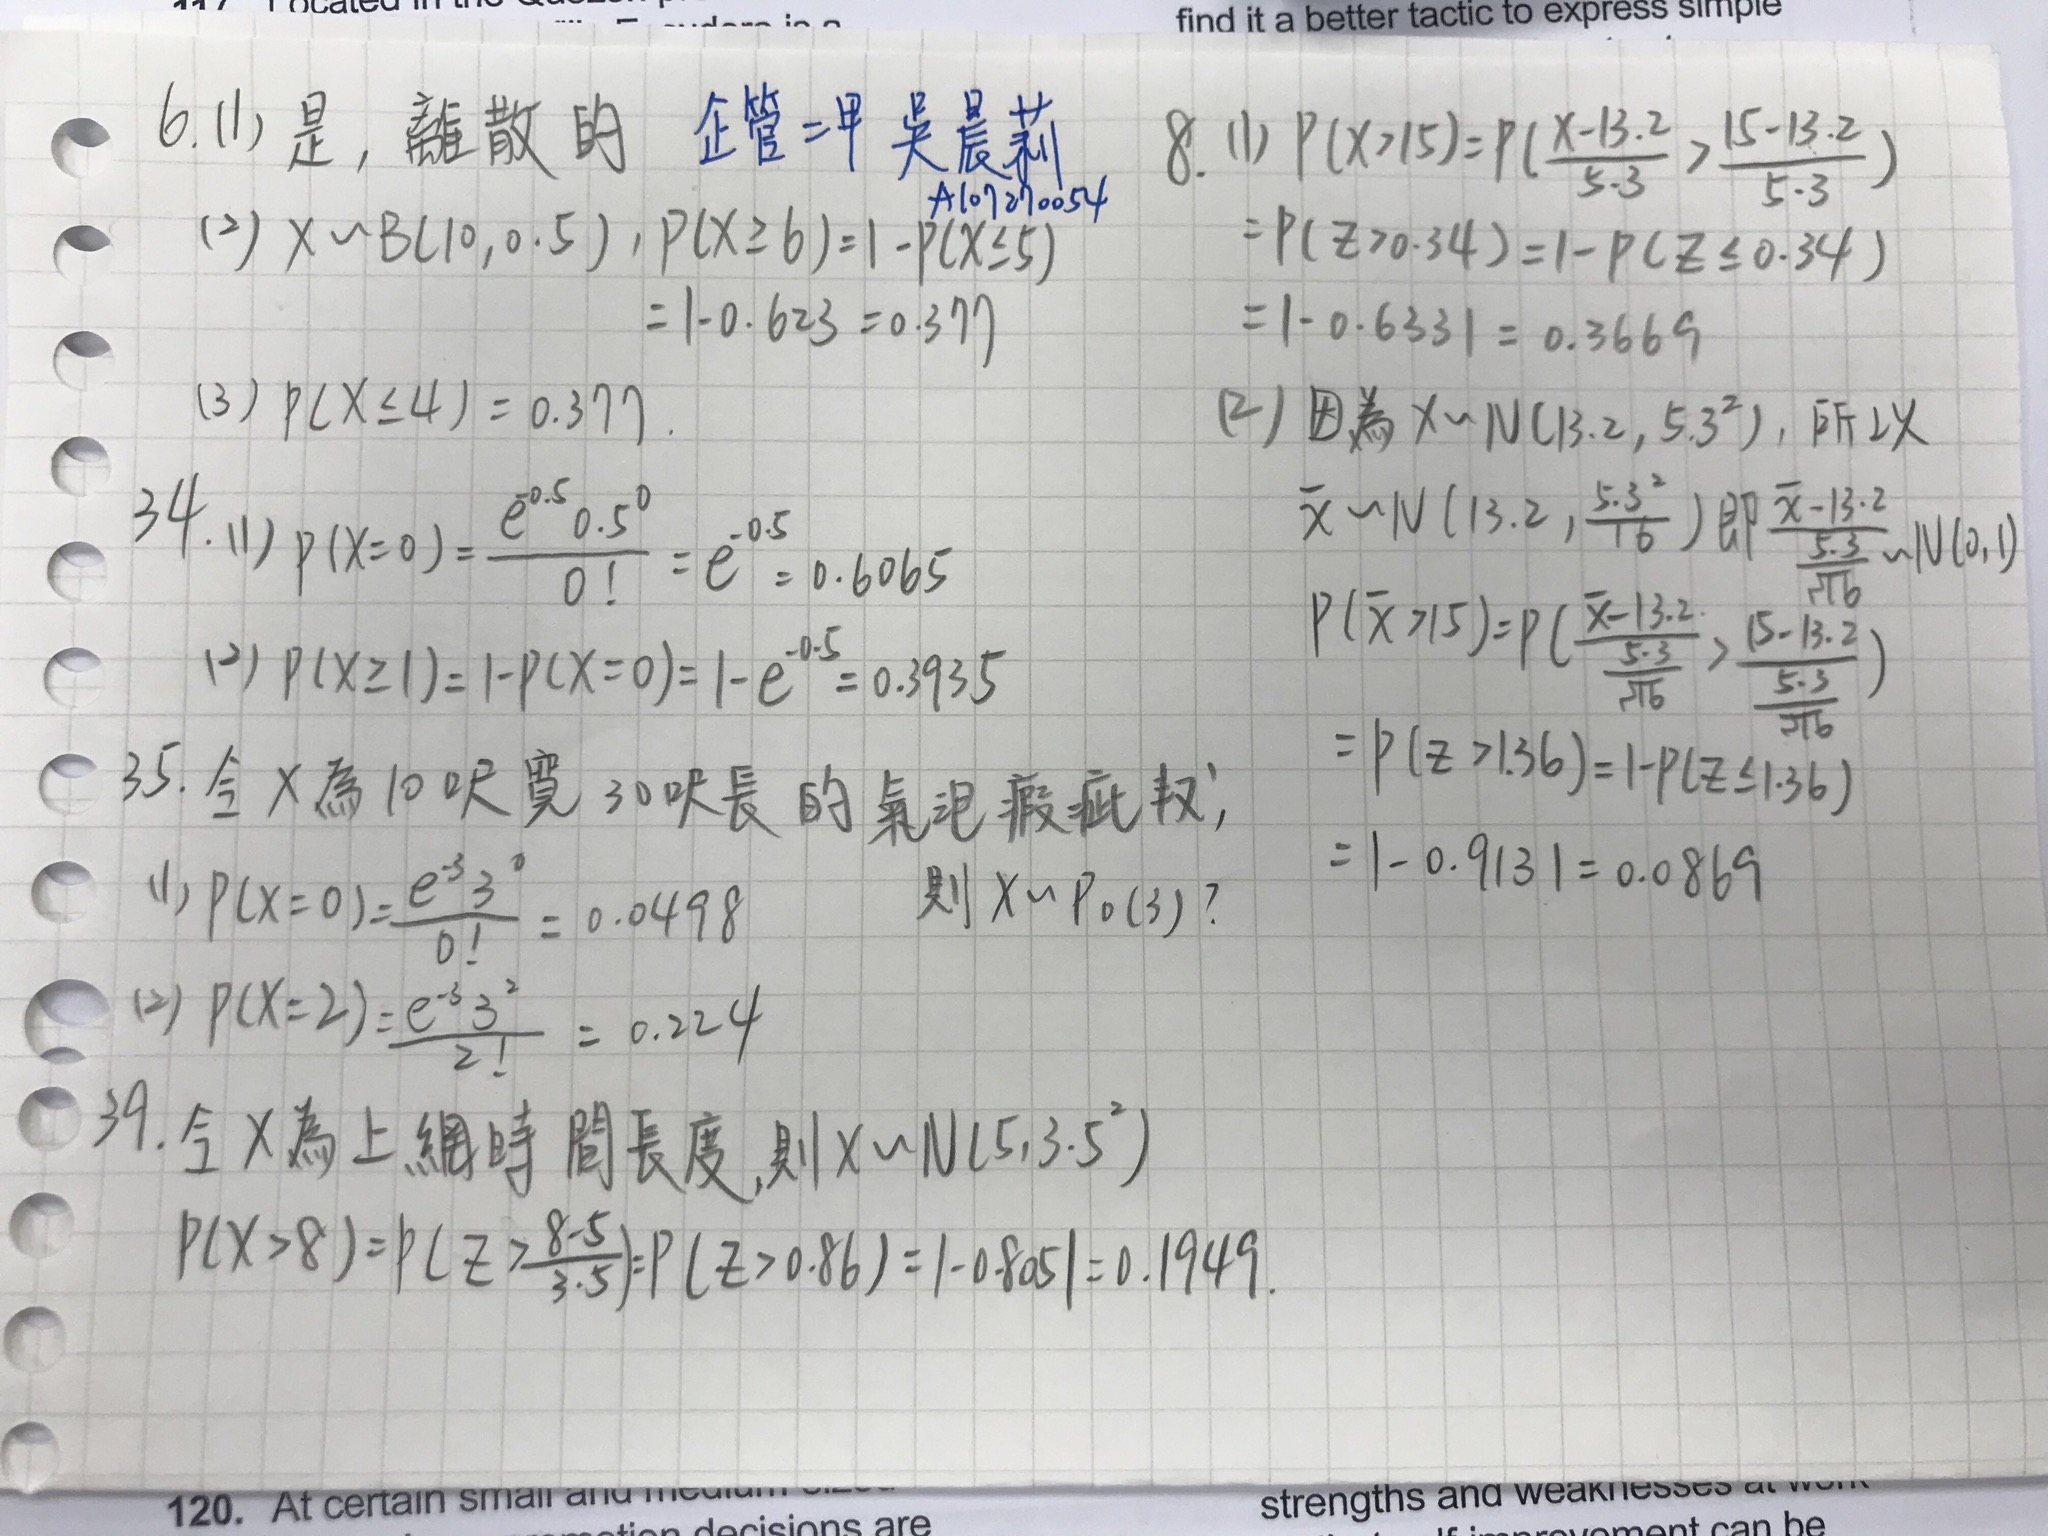 find it a better tactic to express simple
6.(1) 是, 離散的 企管二甲 吳晨莉
A107270054
(2) X~B(10,0.5), P(X≥6)=1-P(X≤5)
=1-0.623=0.377
(3) P(X≤4)=0.377.
34.(1) P(X=0)=\frac{e^{-0.5}0.5^0}{0!}=e^{-0.5}=0.6065
(2) P(X≥1)=1-P(X=0)=1-e^{-0.5}=0.3935
35. 令X為10呎寬30呎長的氣泡瑕疵數,
則X~Po(3)?
(1) P(X=0)=\frac{e^{-3}3^0}{0!}=0.0498
(2) P(X=2)=\frac{e^{-3}3^2}{2!}=0.224
39. 令X為上網時間長度,則X~N(5,3.5²)
P(X>8)=P(Z>\frac{8-5}{3.5})=P(Z>0.86)=1-0.8051=0.1949.
8.(1) P(X>15)=P(\frac{X-13.2}{5.3}>\frac{15-13.2}{5.3})
=P(Z>0.34)=1-P(Z≤0.34)
=1-0.6331=0.3669
(2) 因為X~N(13.2,5.3²), 所以
x̄~N(13.2,\frac{5.3²}{16})即\frac{x̄-13.2}{\frac{5.3}{√16}}~N(0,1)
P(x̄>15)=P(\frac{x̄-13.2}{\frac{5.3}{√16}}>\frac{15-13.2}{\frac{5.3}{√16}})
=P(Z>1.36)=1-P(Z≤1.36)
=1-0.9131=0.0869
120. At certain small and medium-sized
decisions are
strengths and weaknesses at work
improvement can be